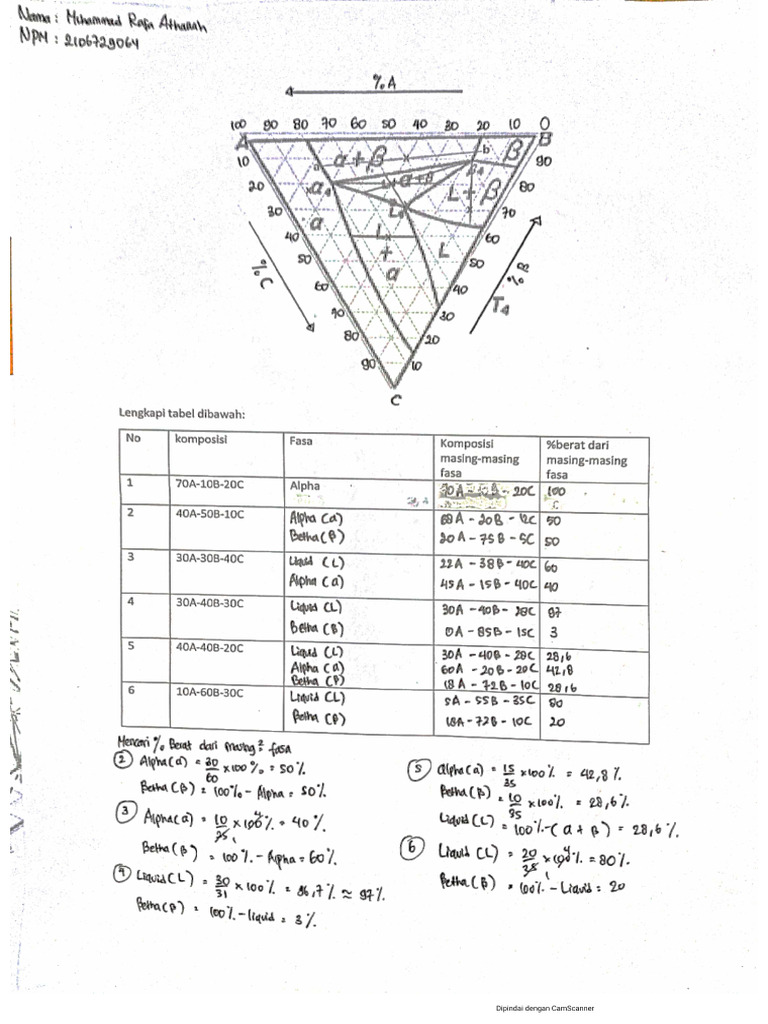 Nama : Muhammad Rafa Athallah
NPM : 2106729064
%A
100 90 80 70 60 50 40 30 20 10 0
A B
10 α+β b β 90
20 α₄ α+β β₄ L+β 80
30 α L₄ 70
40 L 60
50 + L 50
60 α 40
70 30
80 20
90 10
C
%C
%B
T₄
Lengkapi tabel dibawah:
No komposisi Fasa Komposisi masing-masing fasa %berat dari masing-masing fasa
1 70A-10B-20C Alpha 70A - 10B - 20C 100
2 40A-50B-10C Alpha (α) 68A - 20B - 12C 50
Betha (β) 20A - 75B - 5C 50
3 30A-30B-40C Liquid (L) 22A - 38B - 40C 60
Alpha (α) 45A - 15B - 40C 40
4 30A-40B-30C Liquid (L) 30A - 40B - 28C 97
Betha (β) 0A - 85B - 15C 3
5 40A-40B-20C Liquid (L) 30A - 40B - 28C 28,6
Alpha (α) 60A - 20B - 20C 42,8
Betha (β) 18A - 72B - 10C 28,6
6 10A-60B-30C Liquid (L) 5A - 55B - 35C 80
Betha (β) 18A - 72B - 10C 20
Mencari % Berat dari masing² fasa
② Alpha (α) = 30/60 x 100 % = 50 %
Betha (β) = 100% - Alpha = 50%
③ Alpha (α) = 10/25 x 100% = 40 %
Betha (β) = 100% - Alpha = 60%
④ Liquid (L) = 30/31 x 100% = 96,7% ≈ 97%
Betha (β) = 100% - liquid = 3 %
⑤ alpha (α) = 15/35 x 100% = 42,8 %
Betha (β) = 10/35 x 100% = 28,6%
Liquid (L) = 100% - (α + β) = 28,6%
⑥ Liquid (L) = 20/25 x 100% = 80%
Betha (β) = 100% - Liquid = 20
Dipindai dengan CamScanner